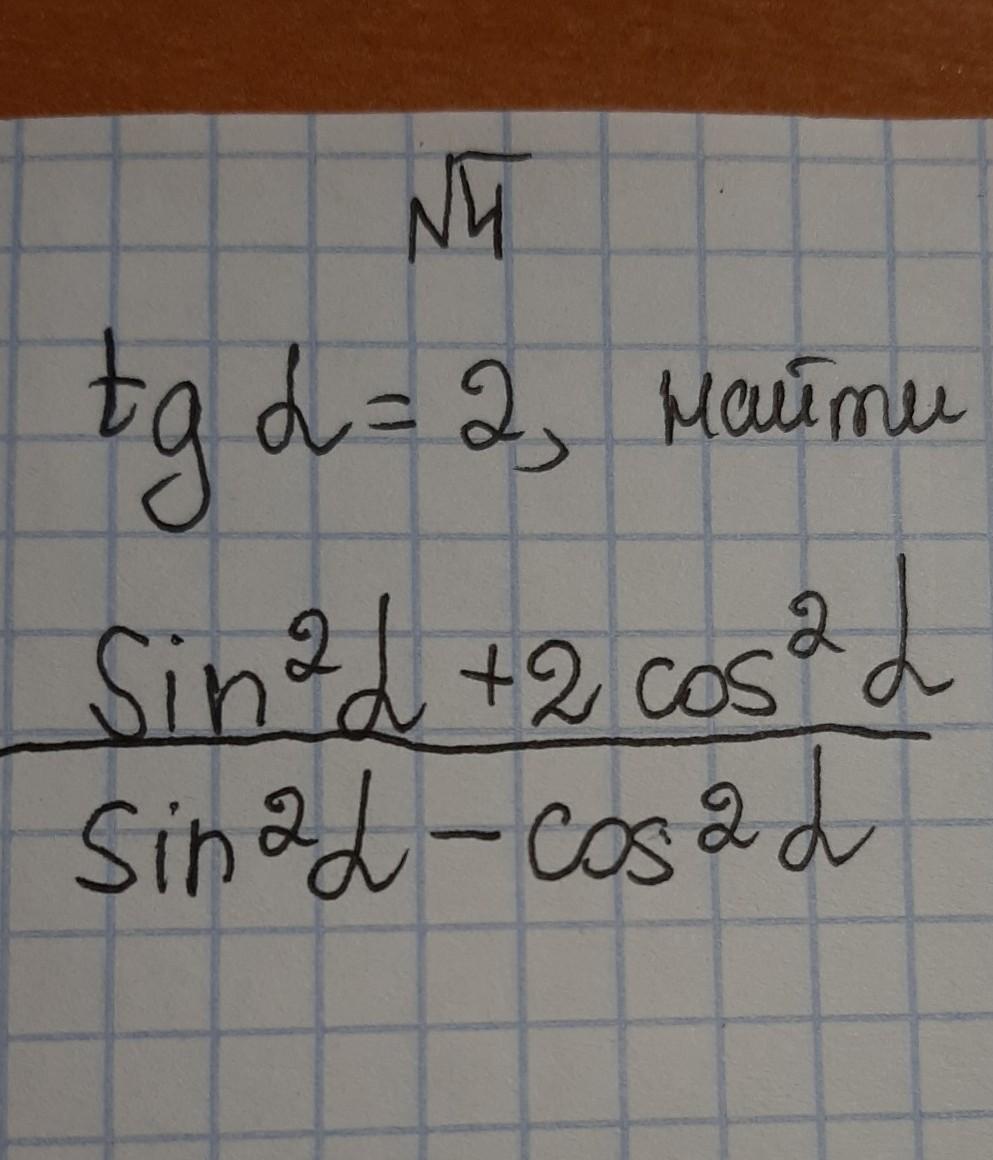 №4
tg α = 2, найти
Sin²α + 2 cos²α
Sin²α - cos²α